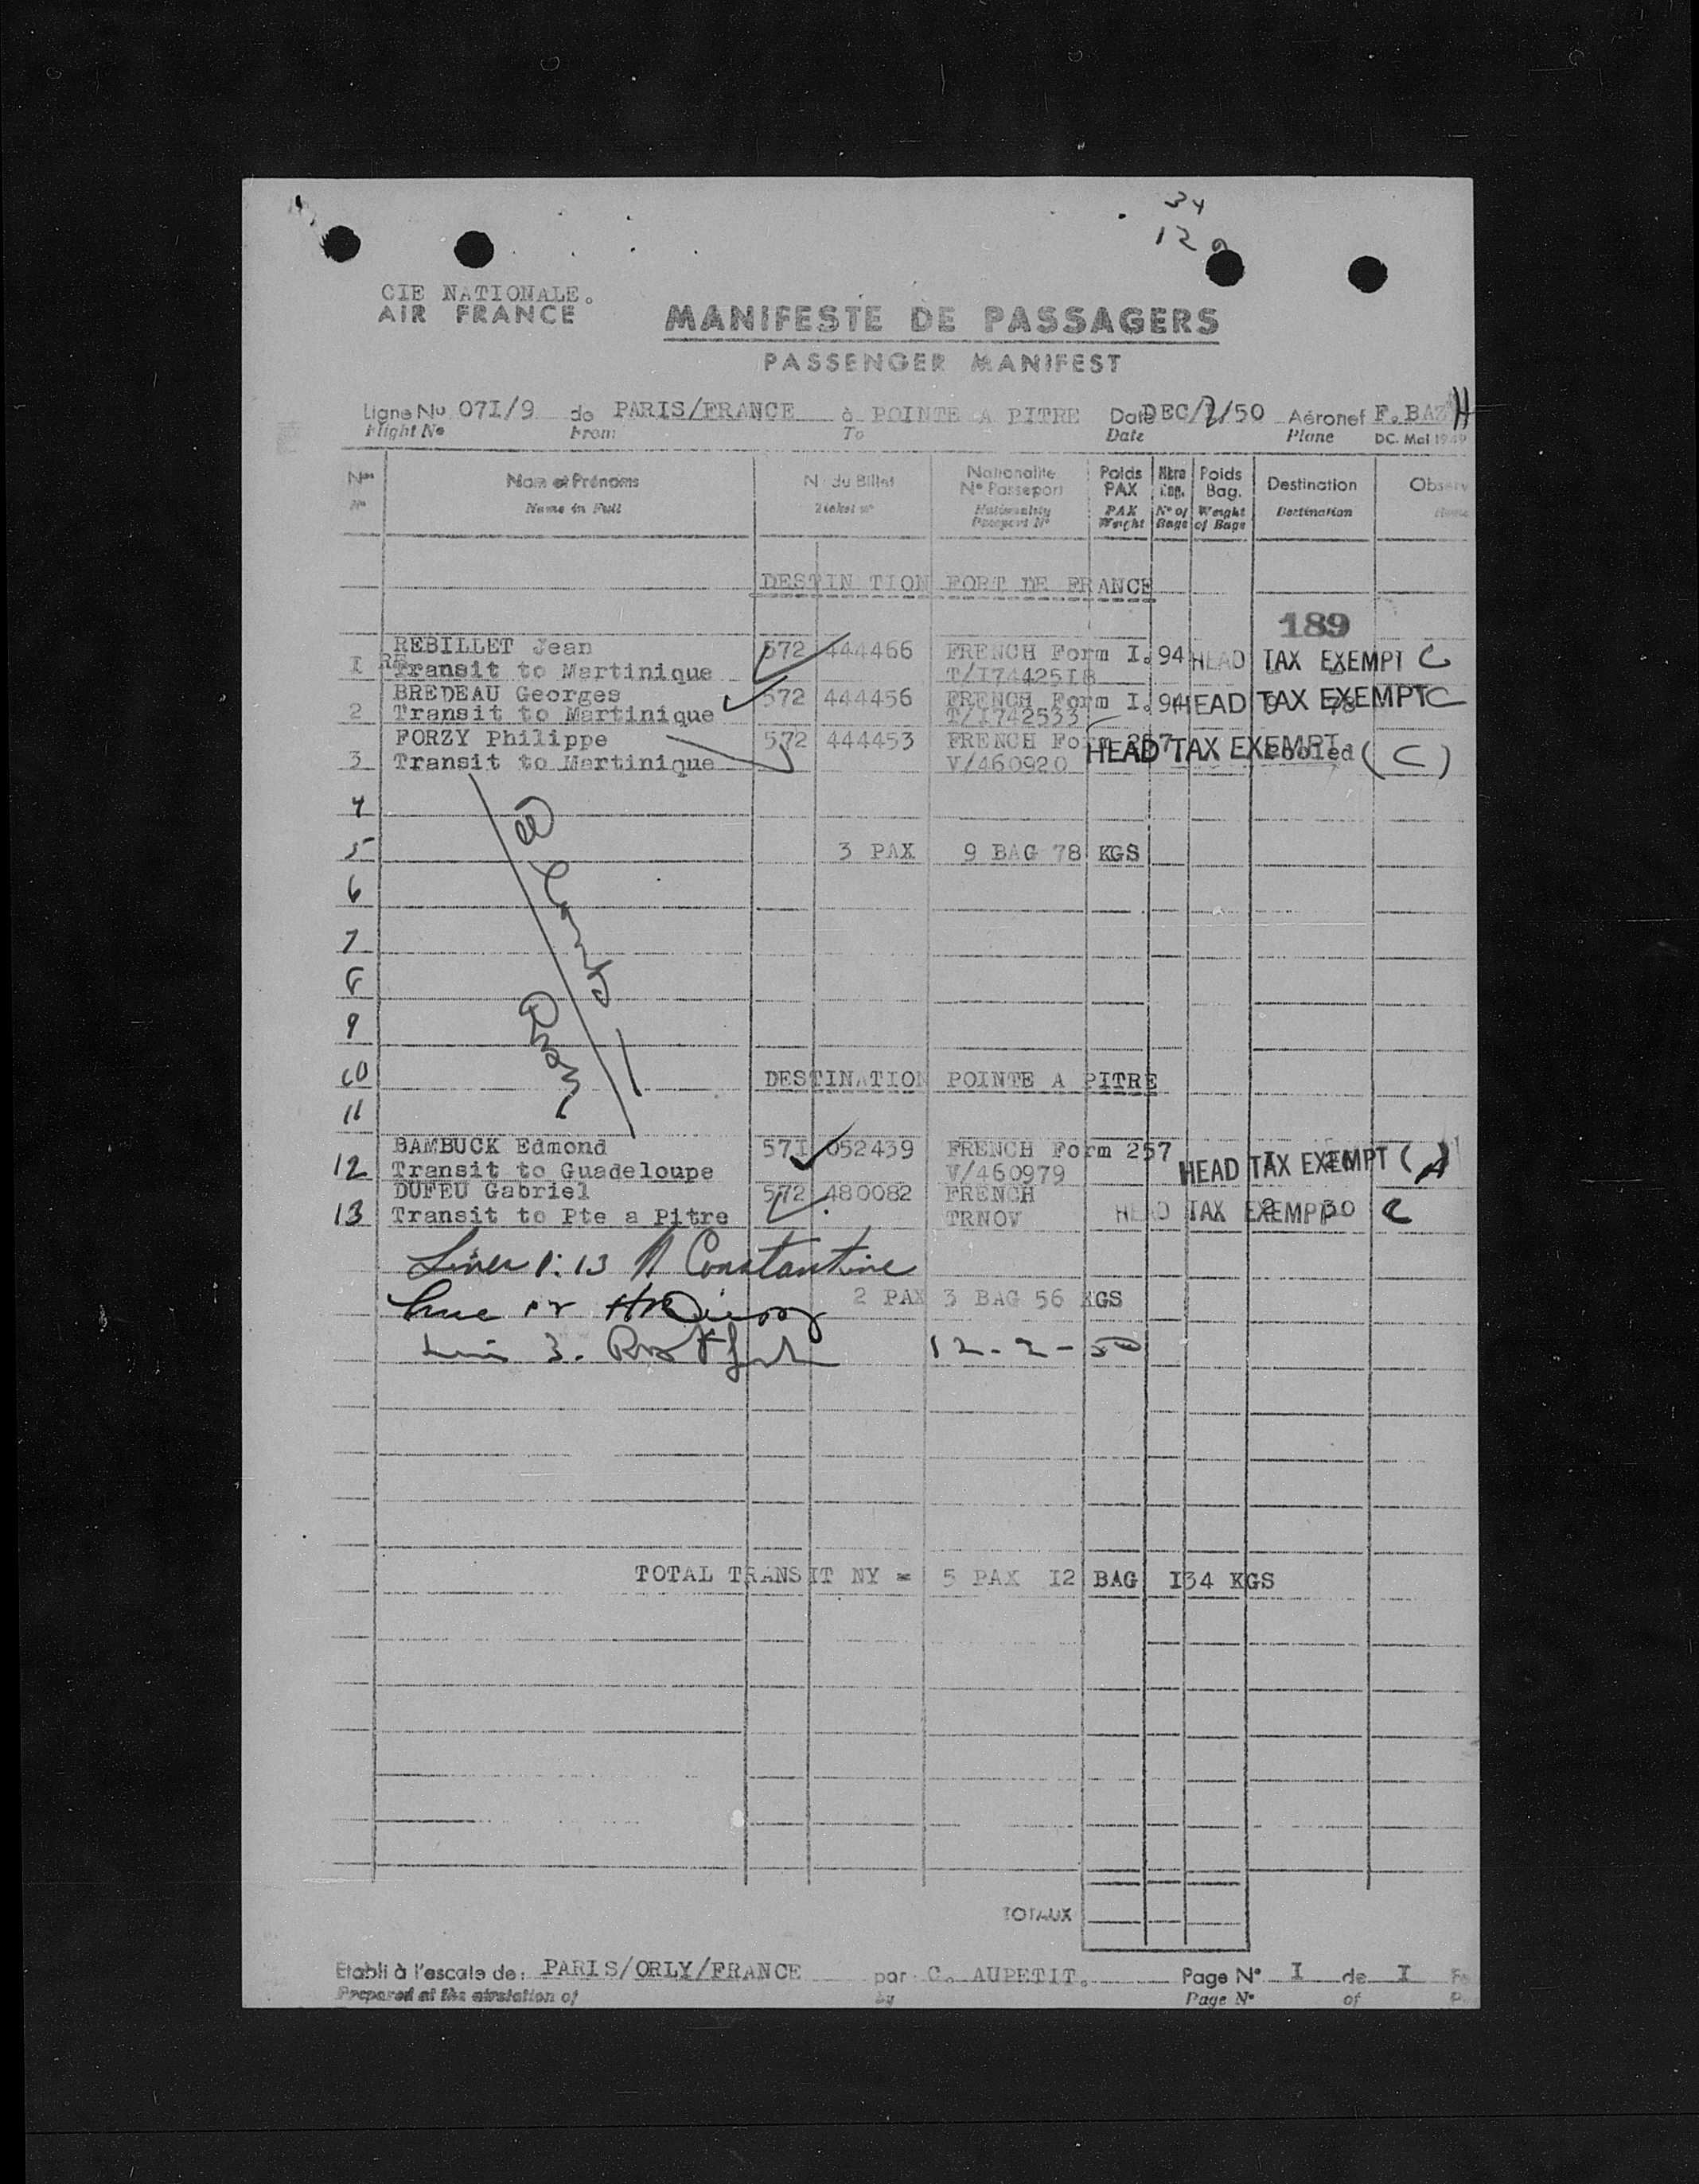 34
12
CIE NATIONALE.
AIR FRANCE
MANIFESTE DE PASSAGERS
PASSENGER MANIFEST
Ligne No 071/9 de PARIS/FRANCE à POINTE A PITRE Date DEC/2/50 Aéronef F.BAZ H
Flight No From To Date Plane DC. Mai 1949
Nos Nom et Prénoms N° du Billet Nationalité Poids Nbre Poids Destination Observ
N° Passeport PAX Bag. Bag.
No Name in Full Ticket no Nationality PAX No of Weight Destination
Passport No Weight Bags of Bags
DESTIN TION FORT DE FRANCE
189
REBILLET Jean 572 444466 FRENCH Form I.94 HEAD TAX EXEMPT C
1 Transit to Martinique T/I7442518
BREDEAU Georges 572 444456 FRENCH Form I.94 HEAD TAX EXEMPT C
2 Transit to Martinique T/I742533
FORZY Philippe 572 444453 FRENCH Form 257 HEAD TAX EXEMPT
3 Transit to Martinique V/460920 pooled (C)
4
5 3 PAX 9 BAG 78 KGS
6
7
8
9
10 DESTINATION POINTE A PITRE
11
BAMBUCK Edmond 571 052439 FRENCH Form 257
12 Transit to Guadeloupe V/460979 HEAD TAX EXEMPT (A)
DUFEU Gabriel 572 480082 FRENCH
13 Transit to Pte a Pitre TRNOV HEAD TAX EXEMPT 2 30 C
Lines 1.13 A Constantine
2 PAX 3 BAG 56 KGS
Line 12
Line 3. 12-2-50
TOTAL TRANSIT NY = 5 PAX I2 BAG I34 KGS
TOTAUX
Etabli à l'escale de: PARIS/ORLY/FRANCE par C. AUPETIT. Page N° I de I
Prepared at the airstation of by Page N° of